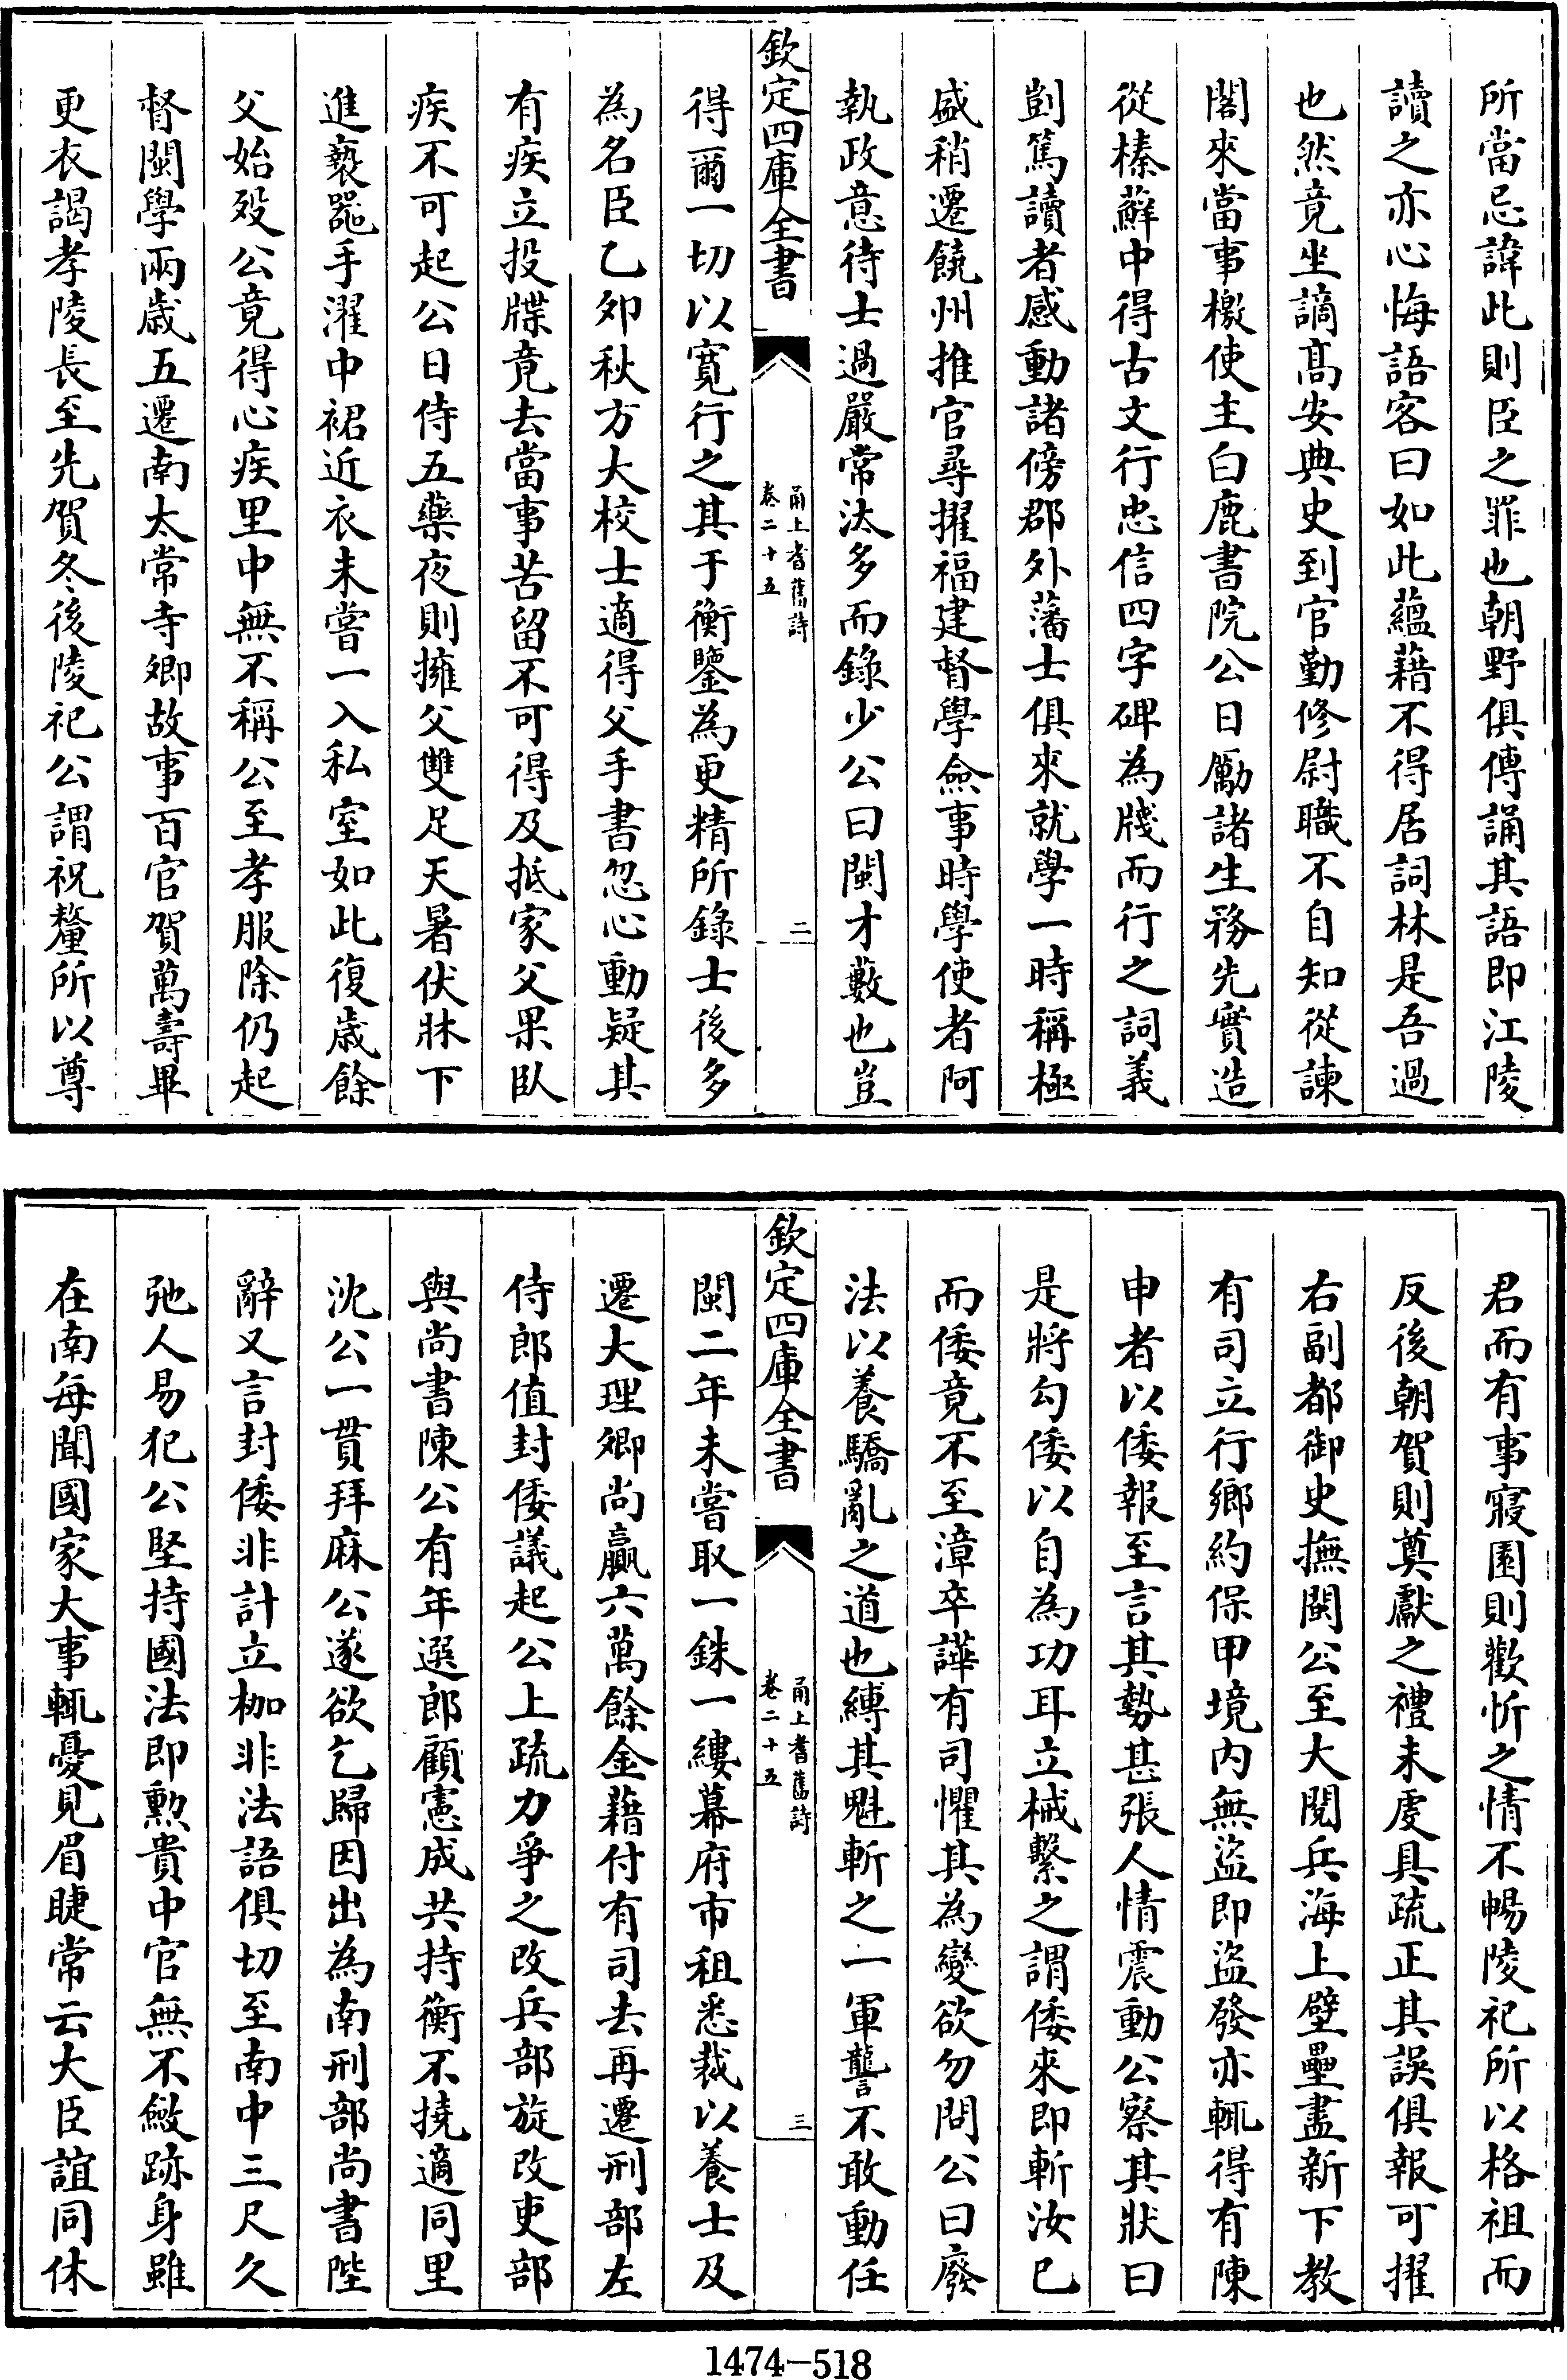 所當忌諱此則臣之罪也朝野俱傳誦其語即江陵
讀之亦心悔語客曰如此藴藉不得居詞林是吾過
也然竟坐謫髙安典史到官勤修尉職不自知從諫
閣來當事檄使主白鹿書院公日勵諸生務先實造
從榛蘚中得古文行忠信四字碑為牋而行之詞義
剴篤讀者感動諸傍郡外藩士俱來就學一時稱極
盛稍遷饒州推官尋擢福建督學僉事時學使者阿
執政意待士過嚴常汰多而錄少公曰閩才藪也豈
欽定四庫全書
甬上耆舊詩
卷二十五
二
得爾一切以寛行之其于衡鑒為更精所錄士後多
為名臣乙夘秋方大校士適得父手書忽心動疑其
有疾立投牒竟去當事苦留不可得及抵家父果臥
疾不可起公日侍五藥夜則擁父雙足天暑伏牀下
進褻噐手濯中裙近衣未嘗一入私室如此復歲餘
父始殁公竟得心疾里中無不稱公至孝服除仍起
督閩學兩歲五遷南太常寺卿故事百官賀萬壽畢
更衣謁孝陵長至先賀冬後陵祀公謂祝釐所以尊
君而有事寢園則歡忻之情不暢陵祀所以格祖而
反後朝賀則奠獻之禮未虔具疏正其誤俱報可擢
右副都御史撫閩公至大閱兵海上壁壘盡新下教
有司立行鄉約保甲境内無盜即盜發亦輒得有陳
申者以倭報至言其勢甚張人情震動公察其狀曰
是將勾倭以自為功耳立械繫之謂倭來即斬汝已
而倭竟不至漳卒譁有司懼其為變欲勿問公曰廢
法以養驕亂之道也縛其魁斬之一軍讋不敢動任
欽定四庫全書
甬上耆舊詩
卷二十五
三
閩二年未嘗取一銖一縷幕府市租悉裁以養士及
遷大理卿尚贏六萬餘金藉付有司去再遷刑部左
侍郎值封倭議起公上疏力爭之改兵部旋改吏部
與尚書陳公有年選郎顧憲成共持衡不撓適同里
沈公一貫拜麻公遂欲乞歸因出為南刑部尚書陛
辭又言封倭非計立枷非法語俱切至南中三尺久
弛人易犯公堅持國法即勲貴中官無不斂跡身雖
在南每聞國家大事輒憂見眉睫常云大臣誼同休
1474-518